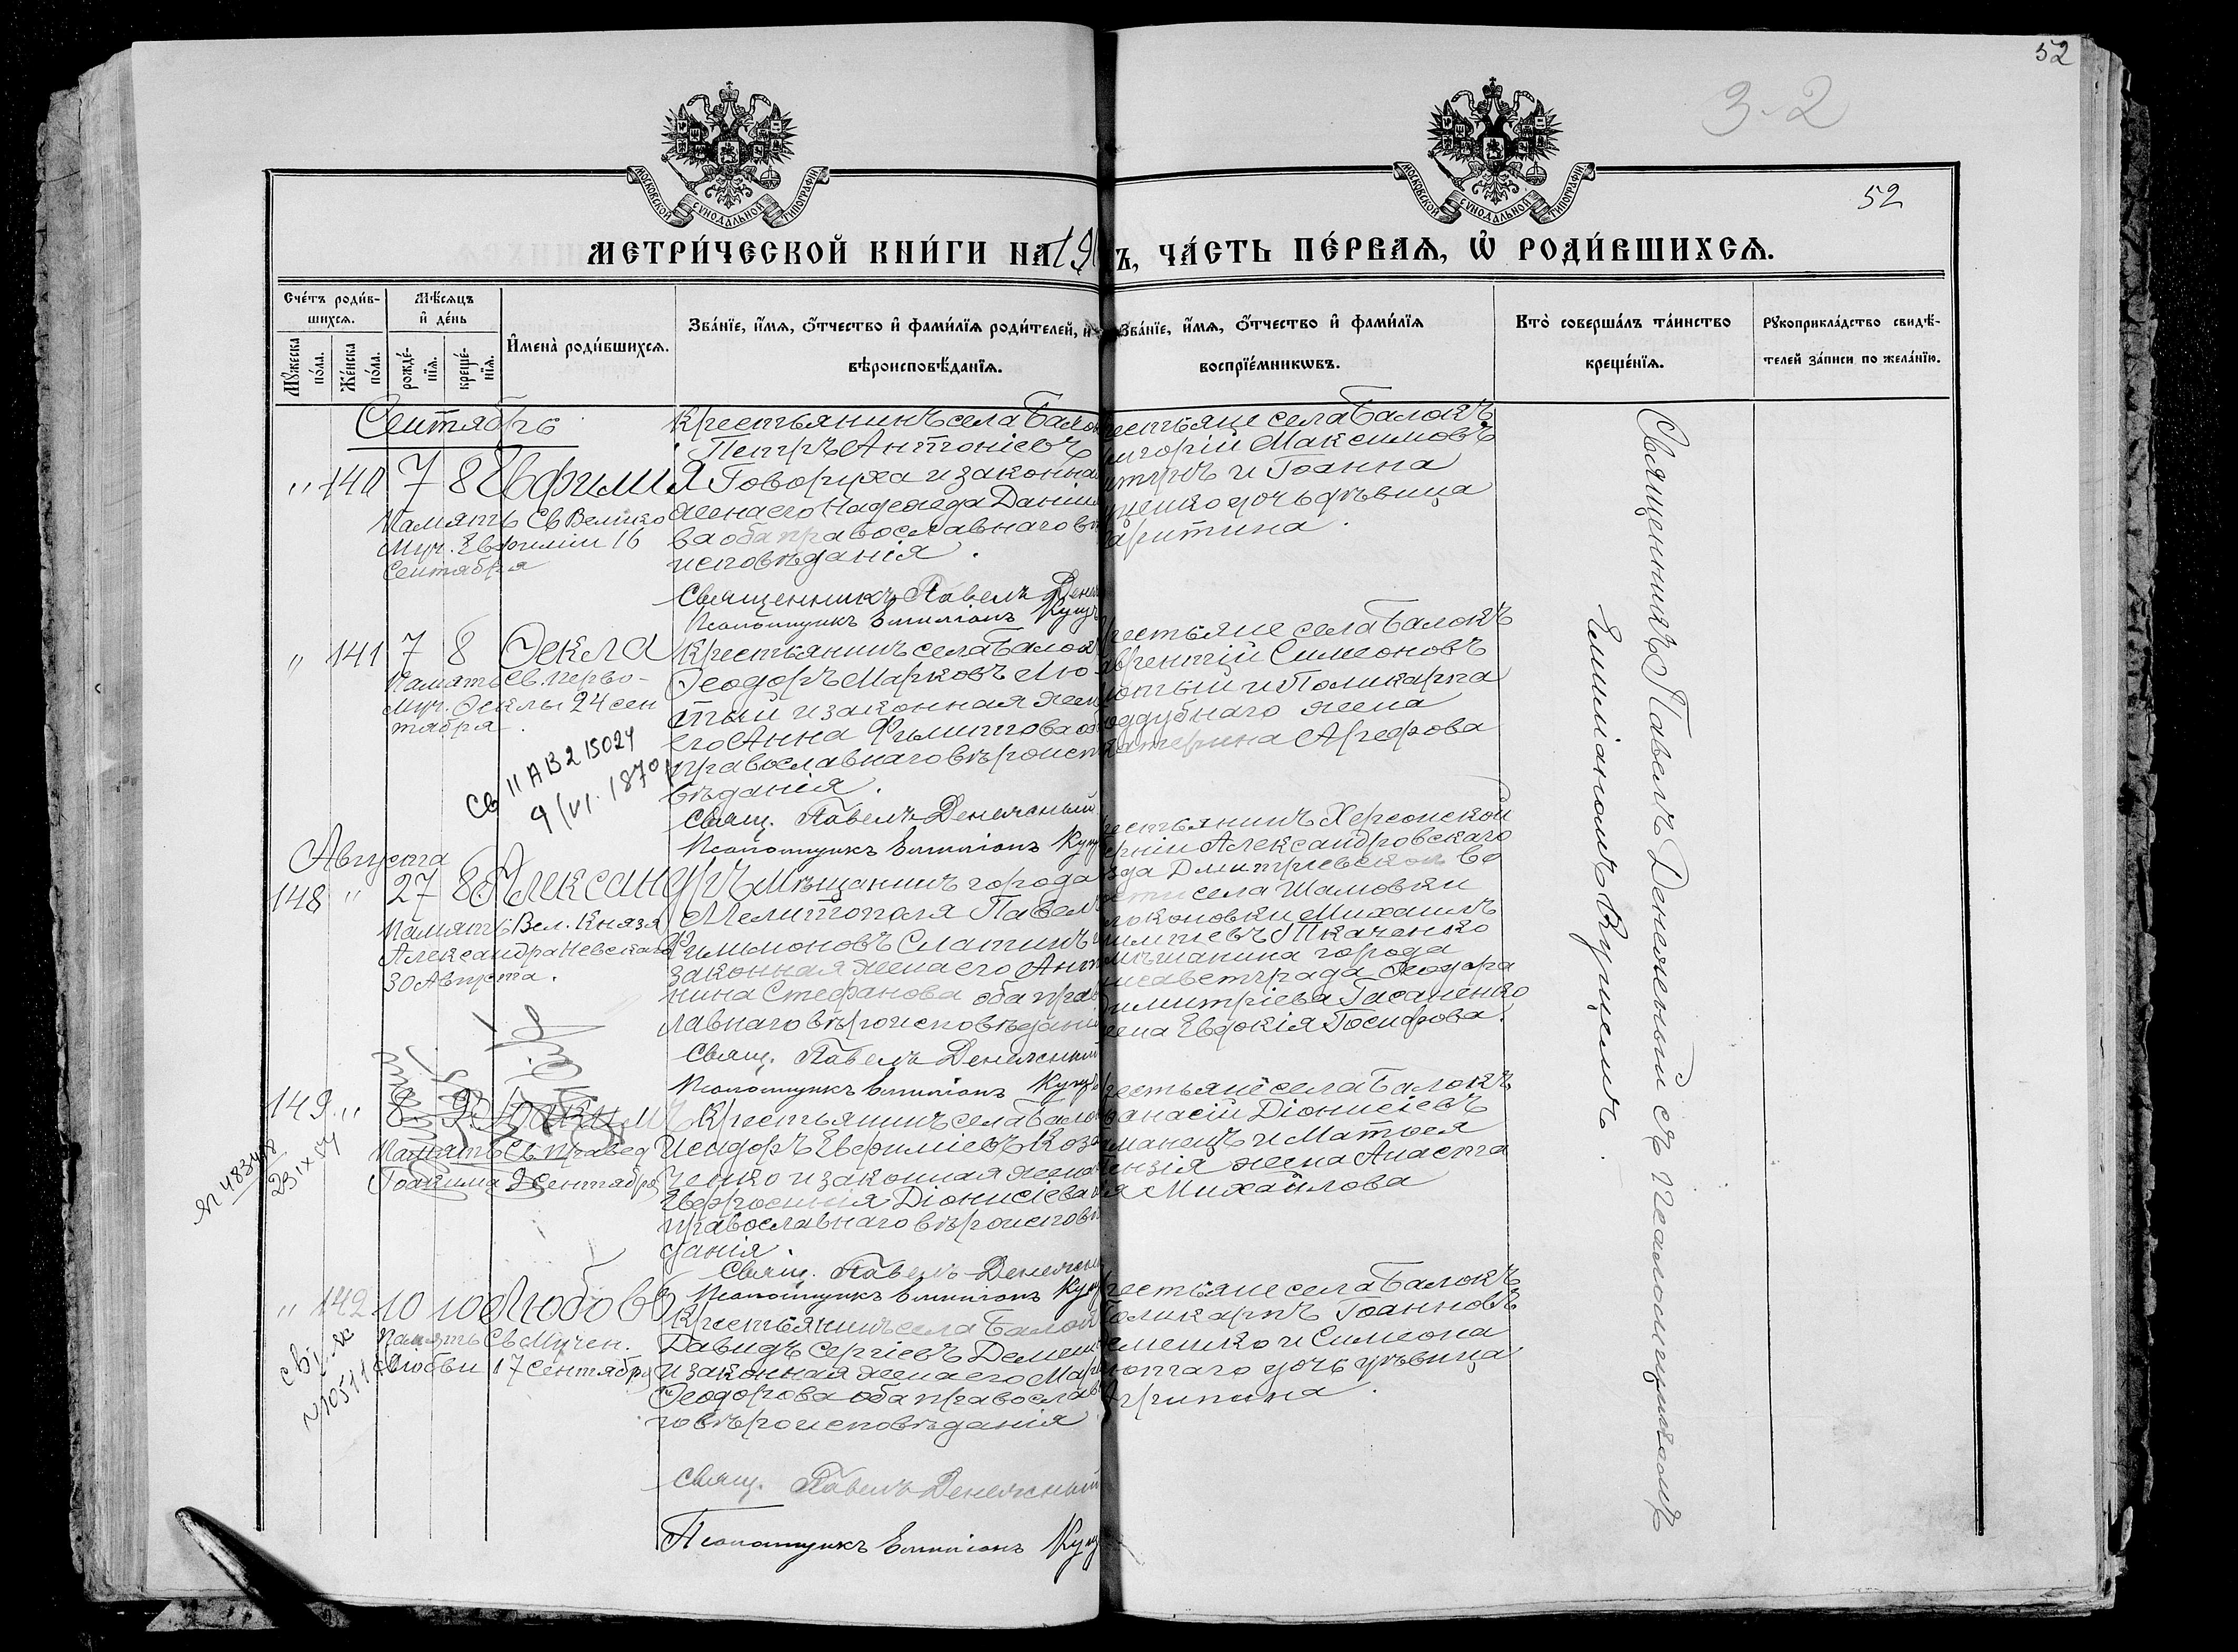 52
3-2
52
МОСКОВСКОЙ СѴНОДАЛЬНОЙ ТИПОГРАФІИ
МОСКОВСКОЙ СѴНОДАЛЬНОЙ ТИПОГРАФІИ
МЕТРИ́ЧЕСКОЙ КНИ́ГИ НА 19
Ъ, ЧА́СТЬ ПЕ́РВАЯ, Ѡ҆ РОДИ́ВШИХСѦ.
Сче́тъ роди́в-
шихсѧ.
Мꙋ́жеска по́ла.
Же́нска по́ла.
Мѣ́сѧцъ
и҆ де́нь
рожде́-
нїѧ.
креще́-
нїѧ.
И҆мена̀ роди́вшихсѧ.
Зва́нїе, и҆́мѧ, ѻ҆́тчество и҆ фами́лїѧ роди́телей, и҆
вѣроисповѣ́данїѧ.
Зва́нїе, и҆́мѧ, ѻ҆́тчество и҆ фами́лїѧ
воспрїе́мникѡвъ.
Кто̀ соверша́лъ та́инство
креще́нїѧ.
Рꙋкоприкла́дство свидѣ́-
телей за́писи по жела́нїю.
Сентябрь
" 140 7 8 Евфимія
Память Св Велико
Муч. Евфиміи 16
Сентября
Крестьянинъ села Бало
Петръ Антоніевъ
Говоруха и законна
жена его Надежда Даніи
ва оба православнаго въ
исповѣданія.
Священникъ Павелъ Дене
Псаломщикъ Емиліанъ Куц
рестьяне села Балокъ
игорій Максимовъ
и Іоанна
ценко дочь дѣвица
аритина.
" 141 7 8 Ѳекла
Память Св. перво-
муч. Ѳеклы 24 сен
тября.
Св II АВ 215024
9/VI. 1870
Крестьянинъ села Балок
Ѳеодоръ Марковъ Лю
тый и законная жен
его Анна Филиппова об
православнаго вѣроисп
вѣданія.
Свящ. Павелъ Денежный
Псаломщикъ Емиліанъ Куц
рестьяне села Балокъ
аврентій Симеоновъ
ютый и Поликарпа
оддубнаго жена
катерина Арефова
Августа
148 " 27 8 Александръ
Память Вел. Князя
Александра Невскаго
30 Августа.
Мѣщанинъ города
Мелитополя Павелъ
Филимоновъ Слатинъ и
законная жена его Анто
нина Стефанова оба прав
лавнаго вѣроисповѣдані
Свящ. Павелъ Денежный
Псаломщикъ Емиліанъ Куц
рестьянинъ Херсонской
ерніи Александровскаго
зда Дмитріевской во
сти села Шамовки
Михаилъ
Ткаченко
мѣщанина города
лисаветграда Ѳеодора
Димитріева Гасаненко
ена Евдокія Іосифова.
149 " 8 9 Іоакимъ
Память Св. правед
Іоакима 9 Сентября
№ 483498
23 IX 57
Крестьянинъ села Бало
Исидоръ Евфиміевъ Коза
ченко и законная жена
Евфросинія Діонисіева
православнаго вѣроисповѣ
данія
Свящ. Павелъ Денежн
Псаломщикъ Емиліанъ Куц
рестьяне села Балокъ
ѳанасій Діонисіевъ
манецъ и Матѳея
жена Анаста
я Михайлова
" 142 10 10 Любовь
Память Св Мучен.
Любви 17 Сентября
Крестьянинъ села Балок
Давидъ Сергіевъ Демеш
и законная жена его Мар
Ѳеодорова оба правосла
го вѣроисповѣданія
Свящ. Павелъ Денежный
Псаломщикъ Емиліанъ Куц
рестьяне села Балокъ
оликарпъ Іоанновъ
емешко и Симеона
ютаго дочь дѣвица
Агрипина.
Священникъ Павелъ Денежный съ псаломщикомъ
Емиліаномъ Куцемъ.